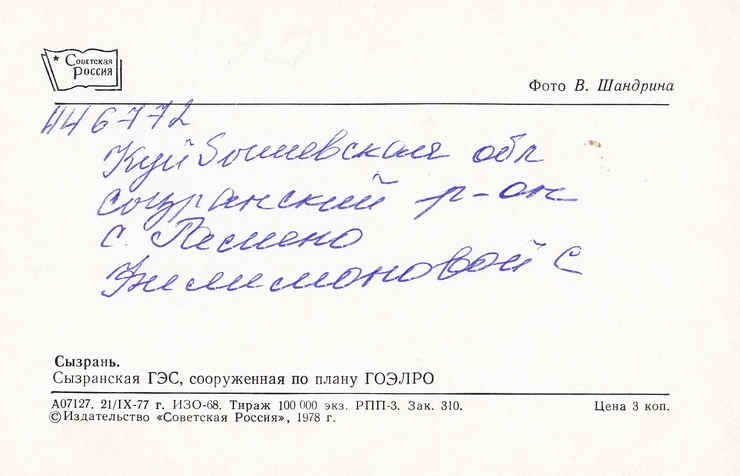 Советская
Россия
Фото В. Шандрина
446772
Куйбышевская обл
Сызранский р-он
с.
С
Сызрань.
Сызранская ГЭС, сооруженная по плану ГОЭЛРО
А07127. 21/IX-77 г. ИЗО-68. Тираж 100 000 экз. РПП-3. Зак. 310.
Цена 3 коп.
©Издательство «Советская Россия», 1978 г.